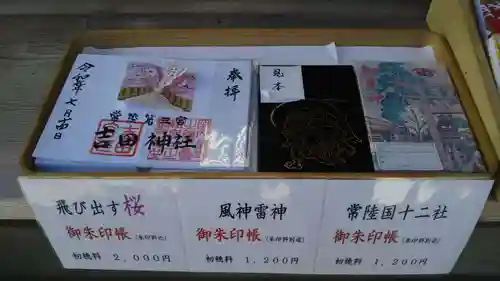 奉拝
常陸第三宮
吉田神社
見本
吉田神社
飛び出す桜
御朱印帳
初穂料 2,000円
風神雷神
御朱印帳(朱印料別途)
初穂料 1,200円
常陸国十二社
御朱印帳(朱印料別途)
初穂料 1,200円